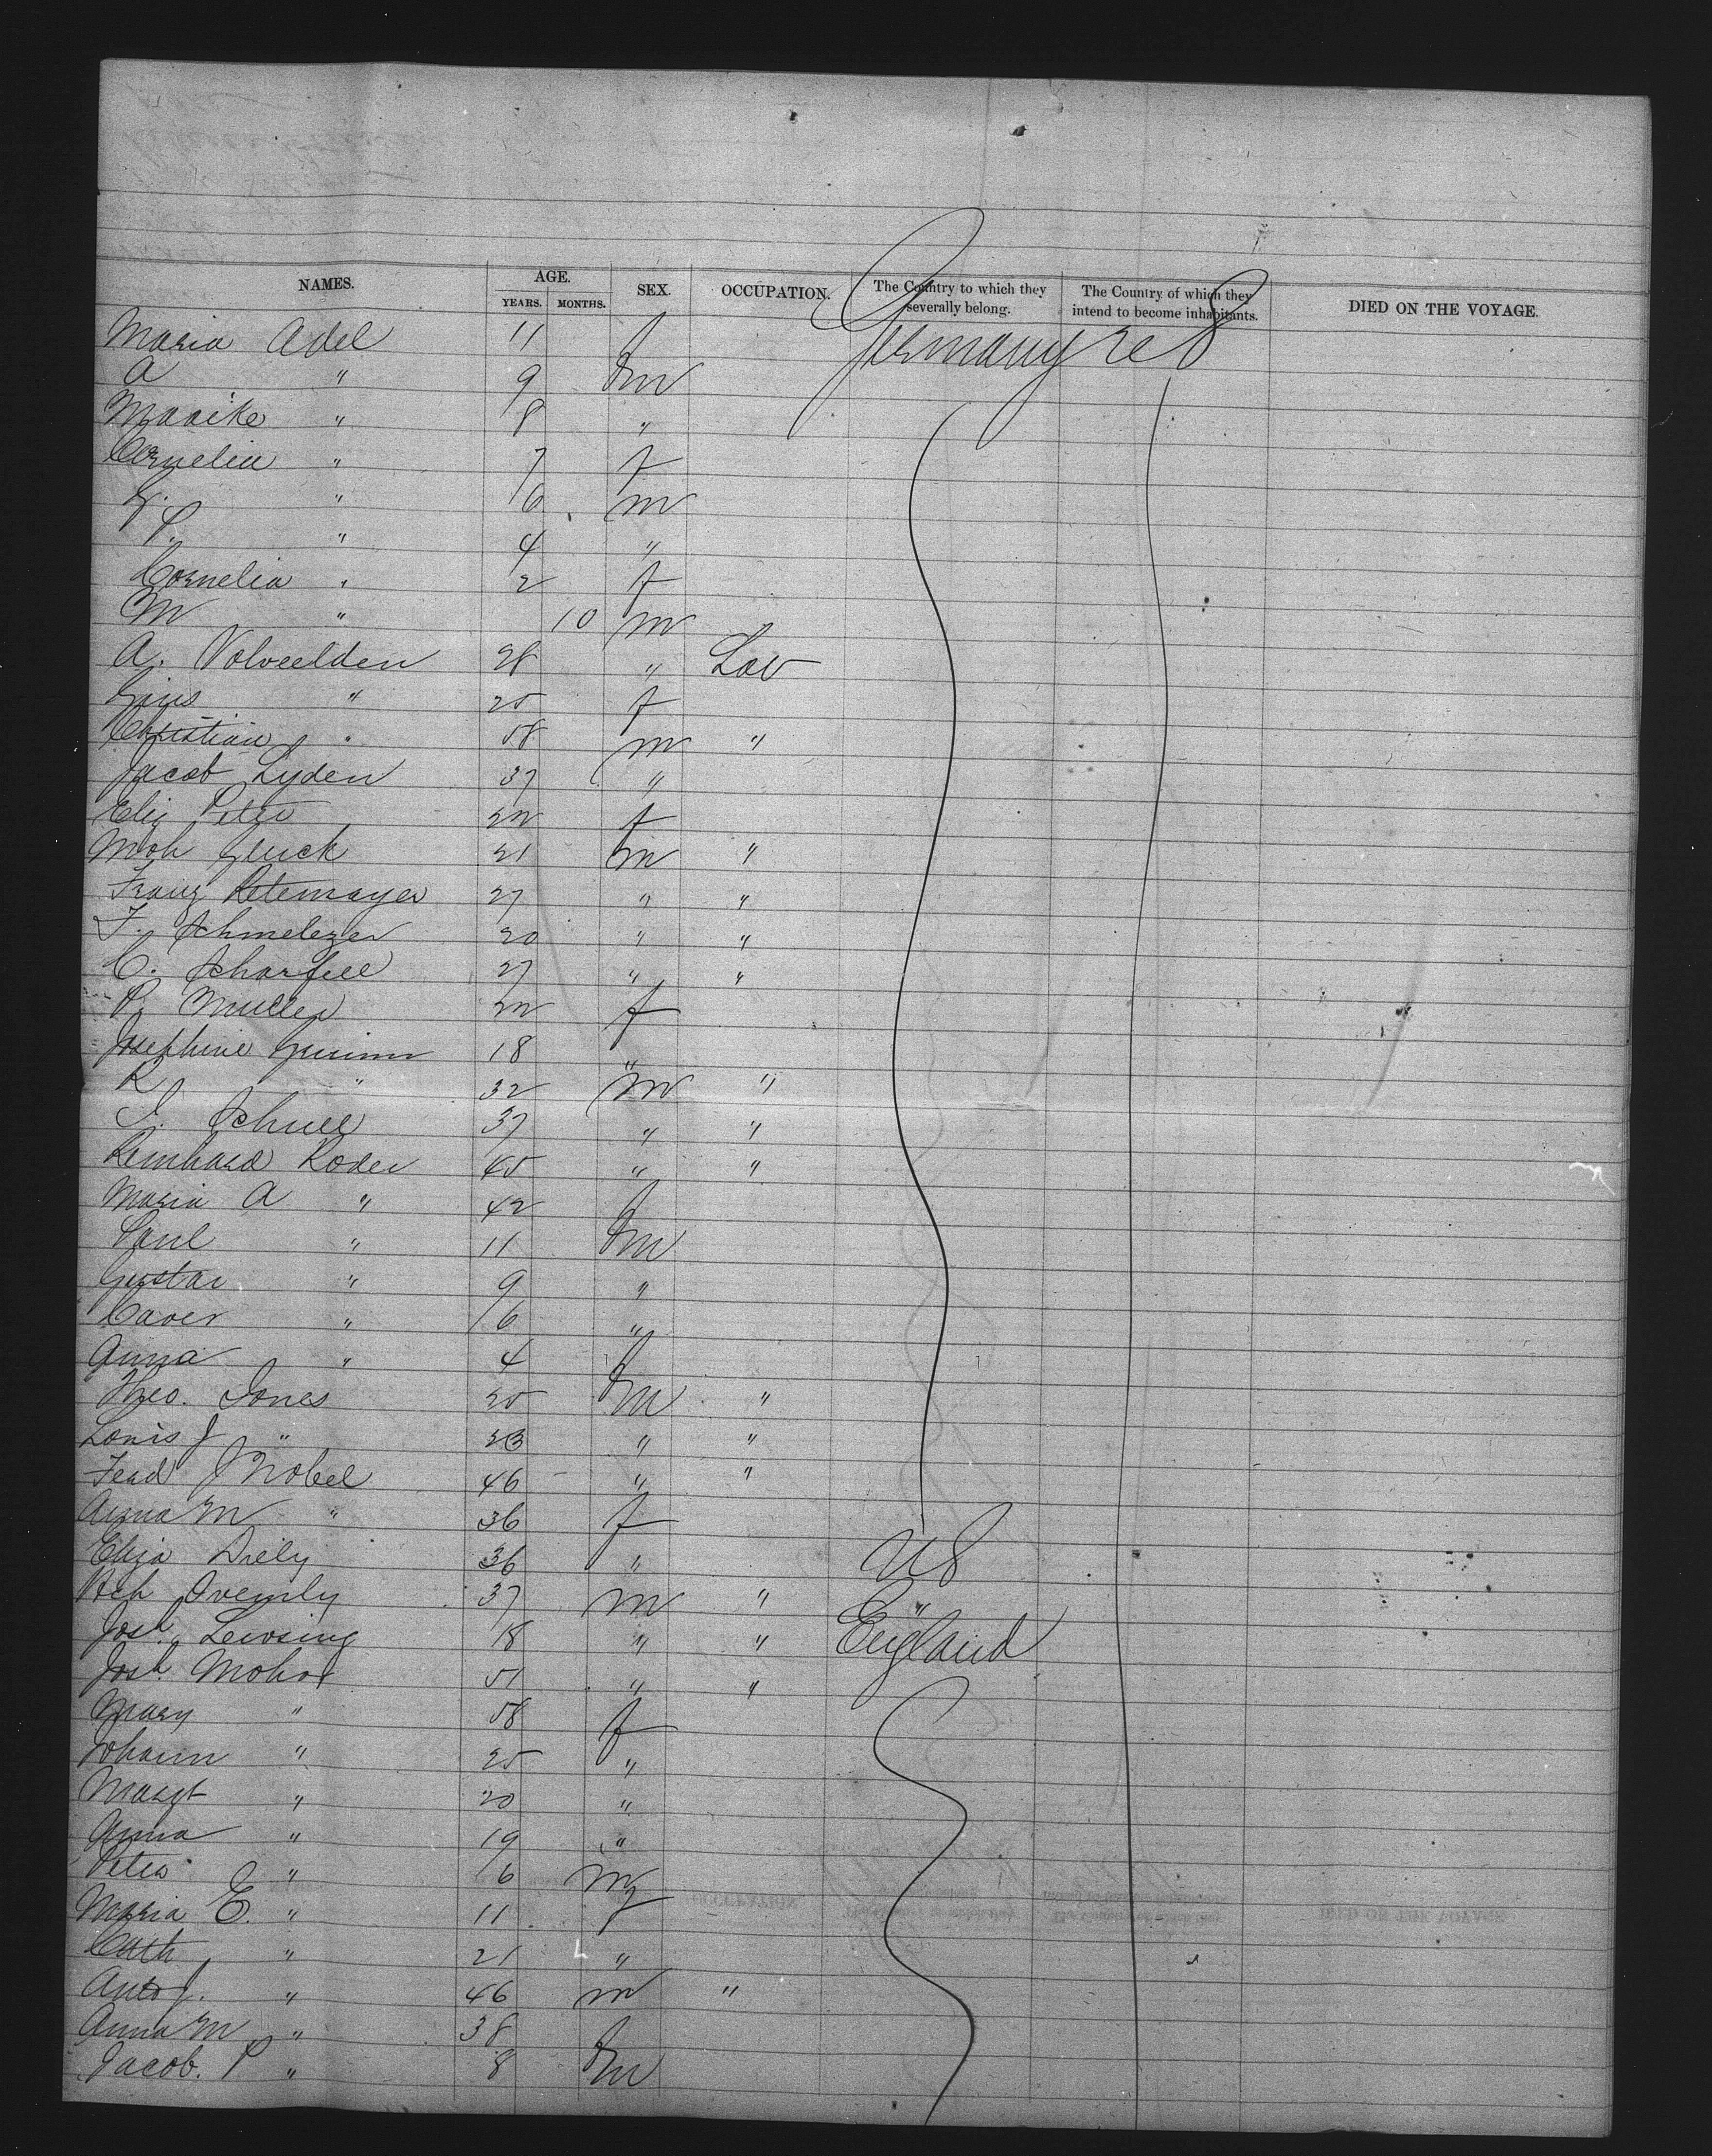 NAMES. AGE. SEX. OCCUPATION. The Country to which they severally belong. The Country of which they intend to become inhabitants. DIED ON THE VOYAGE.
YEARS. MONTHS.
Maria Adel 11 f Germany U S
A " 9 m
Maaike " 8 "
Cornelia " 7 f
G. " 6 m
P. " 4 "
Cornelia " 2 f
M " 10 m
A. Volveelden 28 " Lab
" 25 f
Christian " 58 m "
Jacob Lyden 37 "
Eliz Peter 22 f
Gluck 21 m "
Franz Retemayer 27 " "
F. Schmelzer 20 " "
C. Scharfell 27 " "
P. Muller 22 f
Josephine Grimm 18 "
R " 32 m "
J. Schull 37 " "
Reinhard Roder 45 " "
Maria A " 42 f
Paul " 11 m
Gustav " 9 "
Caver " 6 "
Anna " 4 f
Theo. Jones 25 m "
Louis J " 23 " "
Ferd Nobel 46 " "
Anna M " 36 f
Eliza Diely 36 " U S
37 m " "
Josh. Lewsing 18 " " England
Josh. Mohor 51 " "
Mary " 58 f
Johann " 25 "
Margt " 20 "
Anna " 19 "
Peter " 6 m
Maria E. " 11 f
Cath " 21 "
Anto J. " 46 m "
Anna M " 38 f
Jacob. P " 8 m